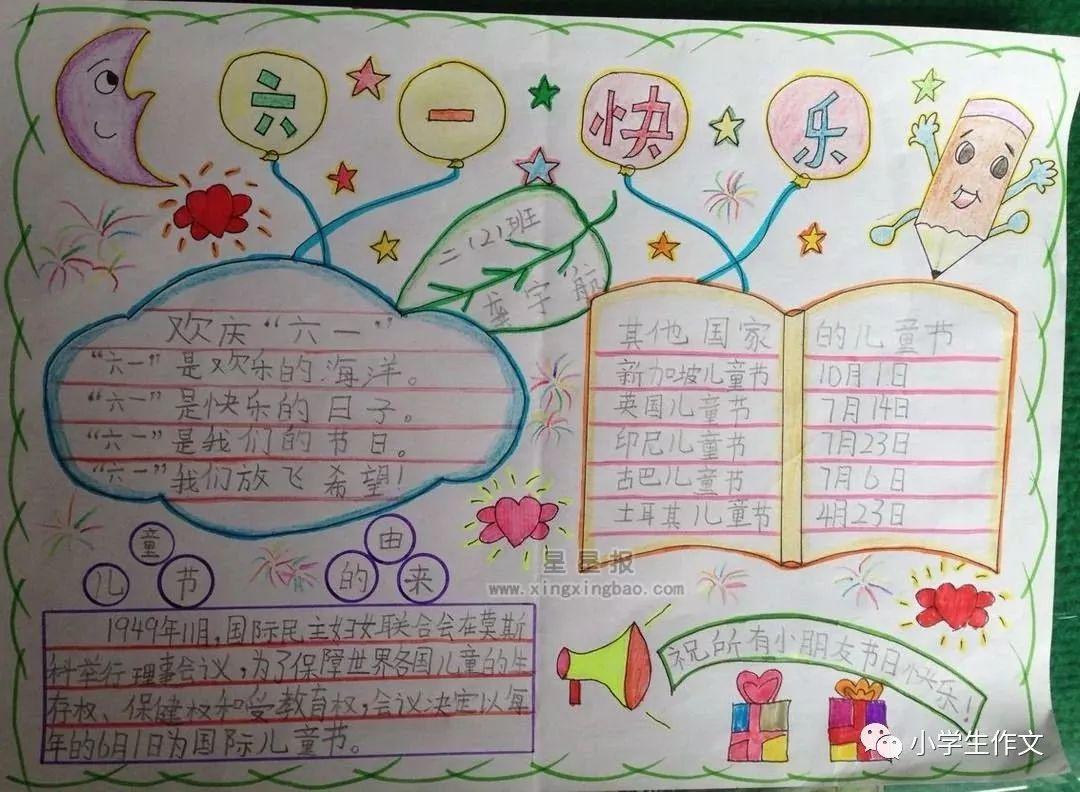 六一快乐
二(2)班
宇航
欢庆“六一”
“六一”是欢乐的海洋。
“六一”是快乐的日子。
“六一”是我们的节日。
“六一”我们放飞希望！
其他国家的儿童节
新加坡儿童节 10月1日
英国儿童节 7月14日
印尼儿童节 7月23日
古巴儿童节 7月6日
土耳其儿童节 4月23日
儿童节的由来
1949年11月，国际民主妇女联合会在莫斯
科举行理事会议，为了保障世界各国儿童的生
存权、保健权和受教育权，会议决定以每
年的6月1日为国际儿童节。
祝所有小朋友节日快乐！
星星报
www.xingxingbao.com
小学生作文